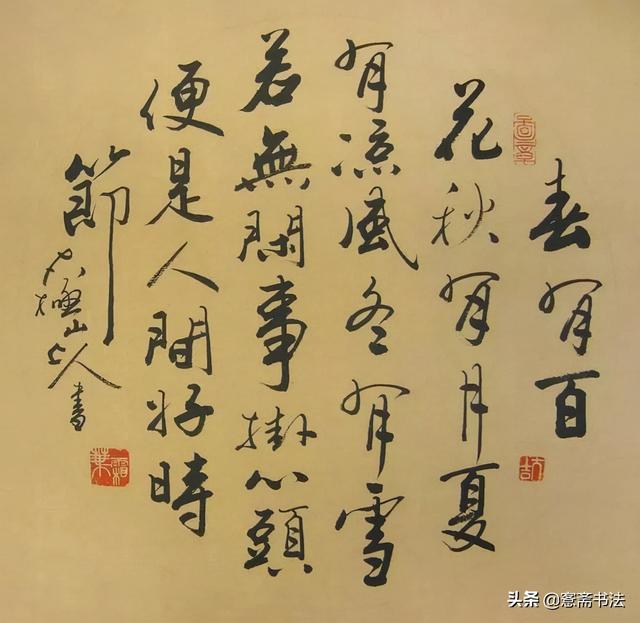 春有百
花秋有月夏
有凉风冬有雪
若無閑事掛心頭
便是人間好時
節
山人書
头条 @窓斋书法